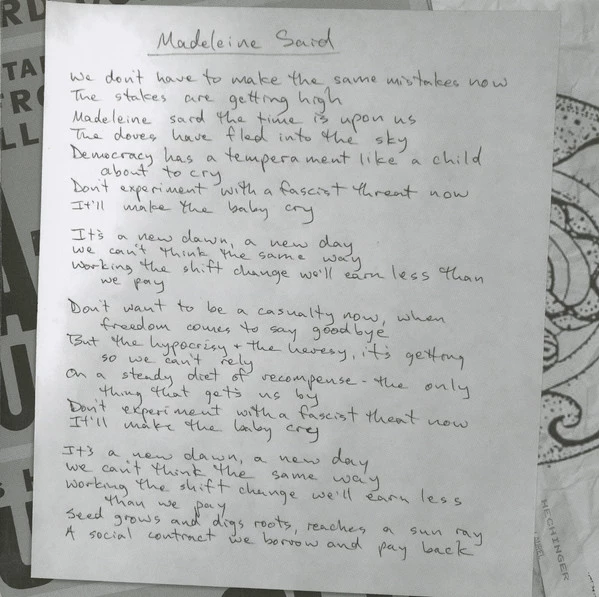 Madeleine Said
We don't have to make the same mistakes now
The stakes are getting high
Madeleine said the time is upon us
The doves have fled into the sky
Democracy has a temperament like a child
about to cry
Don't experiment with a fascist threat now
It'll make the baby cry
It's a new dawn, a new day
we can't think the same way
working the shift change we'll earn less than
we pay
Don't want to be a casualty now, when
freedom comes to say goodbye
But the hypocrisy + the heresy, it's getting
so we can't rely
On a steady diet of recompense - the only
thing that gets us by
Don't experiment with a fascist theat now
It'll make the baby cry
It's a new dawn, a new day
we can't think the same way
working the shift change we'll earn less
than we pay
Seed grows and digs roots, reaches a sun ray
A social contract we borrow and pay back
MECHINGER